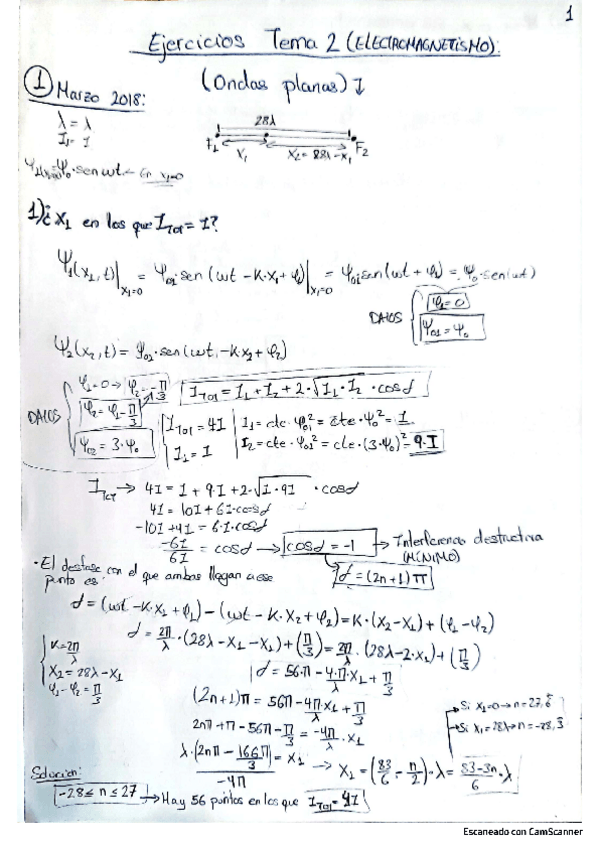 1
Ejercicios Tema 2 (ELECTROMAGNETISMO):
① Marzo 2018: (Ondas planas) ↓
λ = λ
I₁ = I
28λ
F₁ x₁ x₂ = 28λ - x₁ F₂
sen ωt ← En x₁=0
1) ¿ x₁ en los que I_TOT = I?
Ψ₁(x₁,t)|x₁=0 = Ψ₀₁·sen(ωt - K·x₁ + φ₁)|x₁=0 = Ψ₀₁·sen(ωt + φ₁) = Ψ₀·sen(ωt)
DATOS { φ₁=0
Ψ₀₁ = Ψ₀
Ψ₂(x₂,t) = Ψ₀₂·sen(ωt - K·x₂ + φ₂)
DATOS { φ₁=0 → φ₂ = -π/3
φ₂ = φ₁ - π/3
Ψ₀₂ = 3·Ψ₀
I_TOT = I₁ + I₂ + 2·√I₁·I₂ · cosd
I_TOT = 4I
I₁ = I
I₁ = cte·Ψ₀₁² = cte·Ψ₀² = I
I₂ = cte·Ψ₀₁² = cte·(3·Ψ₀)² = 9·I
I_TOT → 4I = I + 9I + 2·√I·9I · cosd
4I = 10I + 6I·cosd
-10I + 4I = 6·I·cosd
-6I/6I = cosd → cosd = -1 → Interferencia destructiva
(MÍNIMO)
d = (2n+1)π
• El desfase con el que ambas llegan a ese
punto es:
d = (ωt - K·x₁ + φ₁) - (ωt - K·x₂ + φ₂) = K·(x₂-x₁) + (φ₁-φ₂)
K = 2π/λ
x₂ = 28λ - x₁
φ₁ - φ₂ = π/3
d = 2π/λ · (28λ - x₁ - x₁) + (π/3) = 2π/λ · (28λ - 2·x₁) + (π/3)
d = 56·π - 4·π/λ·x₁ + π/3
(2n+1)π = 56π - 4π/λ·x₁ + π/3
2nπ + π - 56π - π/3 = -4π/λ · x₁
λ·(2nπ - 166π/3)/-4π = x₁ → x₁ = (83/6 - n/2)·λ = 83-3n/6 ·λ
Si x₁=0 → n = 27,6
Si x₁=28λ → n = -28,3
Solución:
-28 ≤ n ≤ 27 → Hay 56 puntos en los que I_TOT = 4I
Escaneado con CamScanner